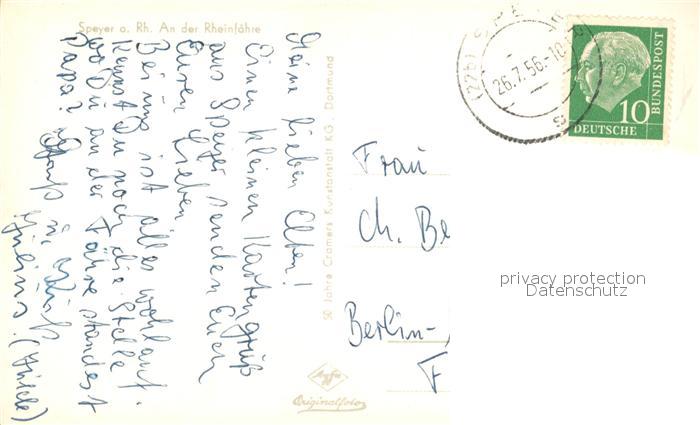 Speyer a. Rh. An der Rheinfähre
Meine lieben Elten!
Einen kleinen Kartengruß
aus Speyer senden Euch
Euren Lieben
Bei uns ist alles wohlauf.
Kennst Du noch die Stelle
wo Du an der Fähre standest
Papa? Gruß u. Kuß
50 Jahre Cramers Kunstanstalt KG. Dortmund
26.7.56.-10
BUNDESPOST
10
DEUTSCHE
Frau
Ch. Be
Berlin-
F
privacy protection
Datenschutz
Agfa
Originalfoto